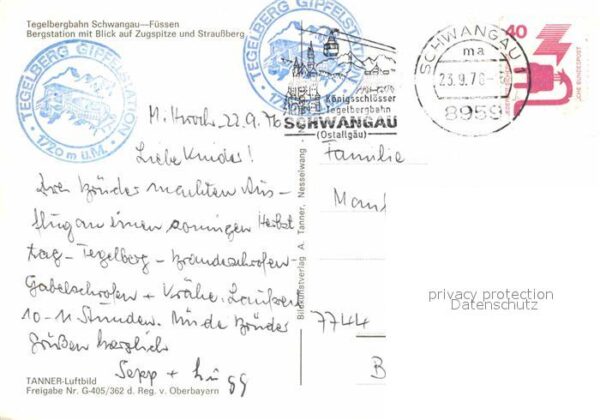 Tegelbergbahn Schwangau—Füssen
Bergstation mit Blick auf Zugspitze und Straußberg
TEGELBERG GIPFELSTATION
1720 m ü.M.
TEGELBERG GIPFELSTATION
Königsschlösser
Tegelbergbahn
SCHWANGAU
(Ostallgäu)
SCHWANGAU 1
ma
23.9.76
8959
40
DEUTSCHE BUNDESPOST
Mittwoch, 22.9.76
Liebe Kinder!
Drei Brüder machten Aus-
flug an einen sonnigen Herbst
tag - Tegelberg - Brandschrofen-
Gabelschrofen + Krähe. Laufzeit
10-11 Stunden. Müde Brüder
grüßen herzlich
Sepp +
Familie
7744
B
Bildkunstverlag A. Tanner, Nesselwang
privacy protection
Datenschutz
TANNER-Luftbild
Freigabe Nr. G-405/362 d. Reg. v. Oberbayern